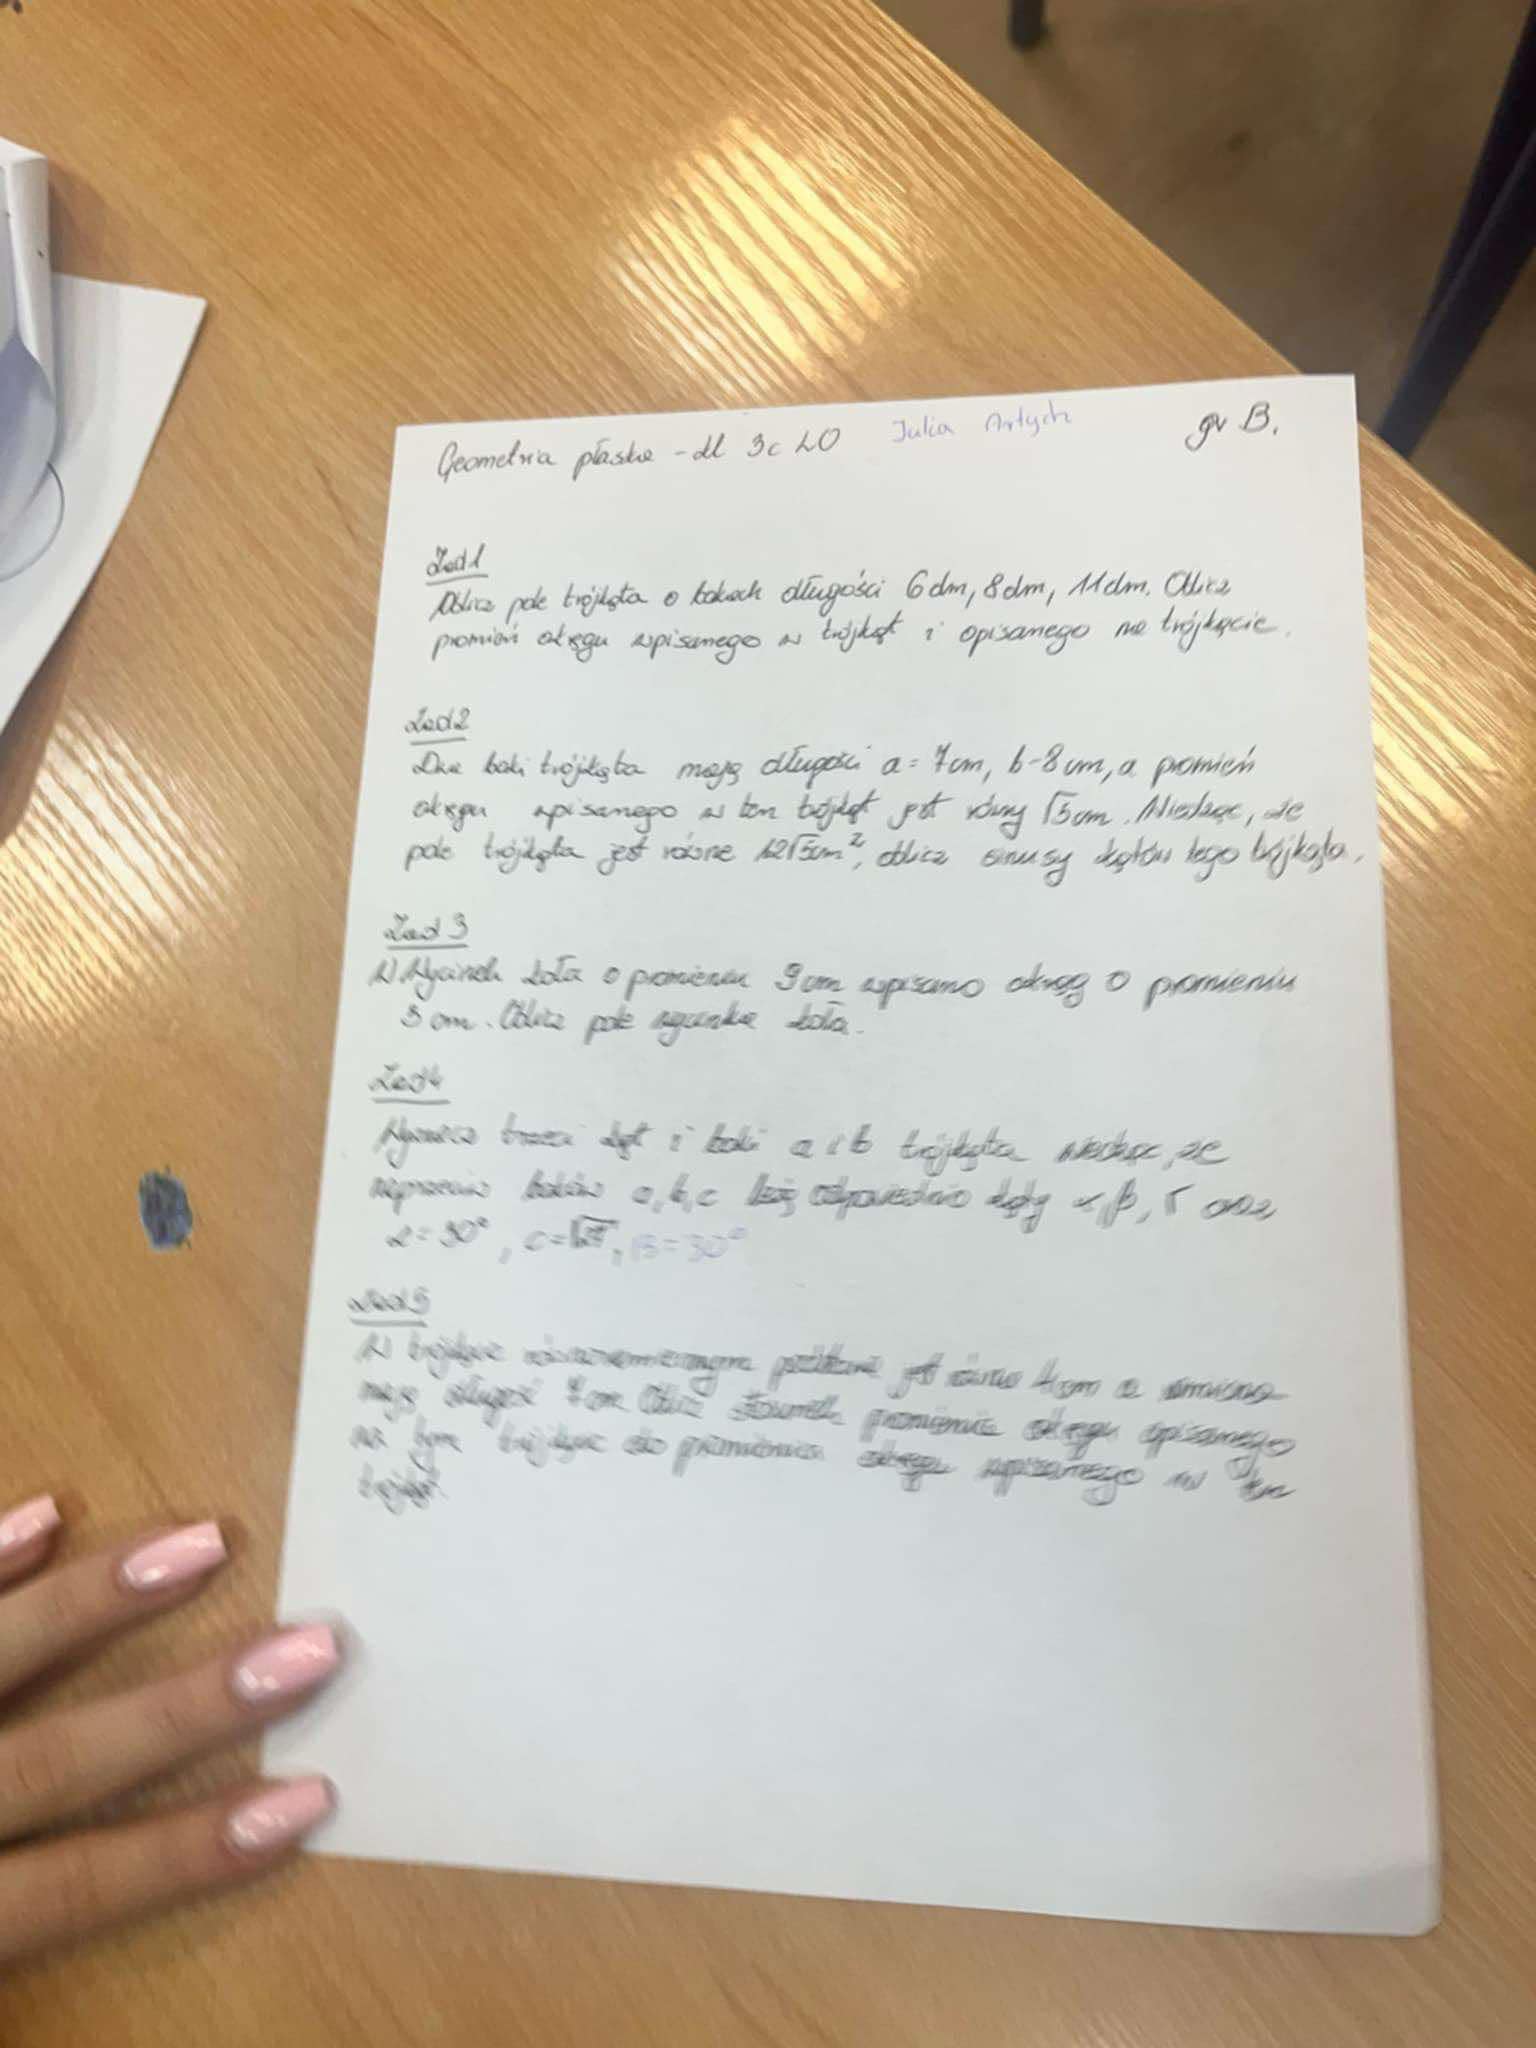 Geometria płaska - dl 3c LO Julia Artych gr B.
Zad 1
Oblicz pole trójkąta o bokach długości 6 dm, 8 dm, 11 dm. Oblicz
promień okręgu wpisanego w trójkąt i opisanego na trójkącie.
Zad 2
Dwa boki trójkąta mają długości a = 7 cm, b - 8 cm, a promień
okręgu wpisanego w ten trójkąt jest równy √5 cm. Wiedząc, że
pole trójkąta jest równe 12√5 cm², oblicz sinusy kątów tego trójkąta.
Zad 3
W wycinek koła o promieniu 9 cm wpisano okrąg o promieniu
3 cm. Oblicz pole wycinka koła.
Zad 4
Wyznacz trzeci kąt i boki a i b trójkąta wiedząc, że
naprzeciw boków a, b, c leżą odpowiednio kąty α, β, γ oraz
α = 30°, c = , β = 30°
Zad 5
W trójkącie równoramiennym podstawa jest równa 4 cm a ramiona
mają długość 7 cm. Oblicz stosunek promienia okręgu opisanego
na tym trójkącie do promienia okręgu wpisanego w ten
trójkąt.